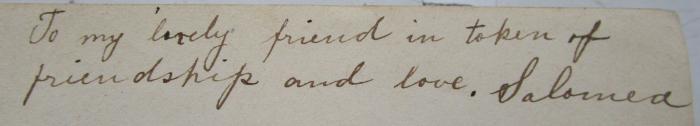 To my lovely friend in token of
friendship and love. Salomea